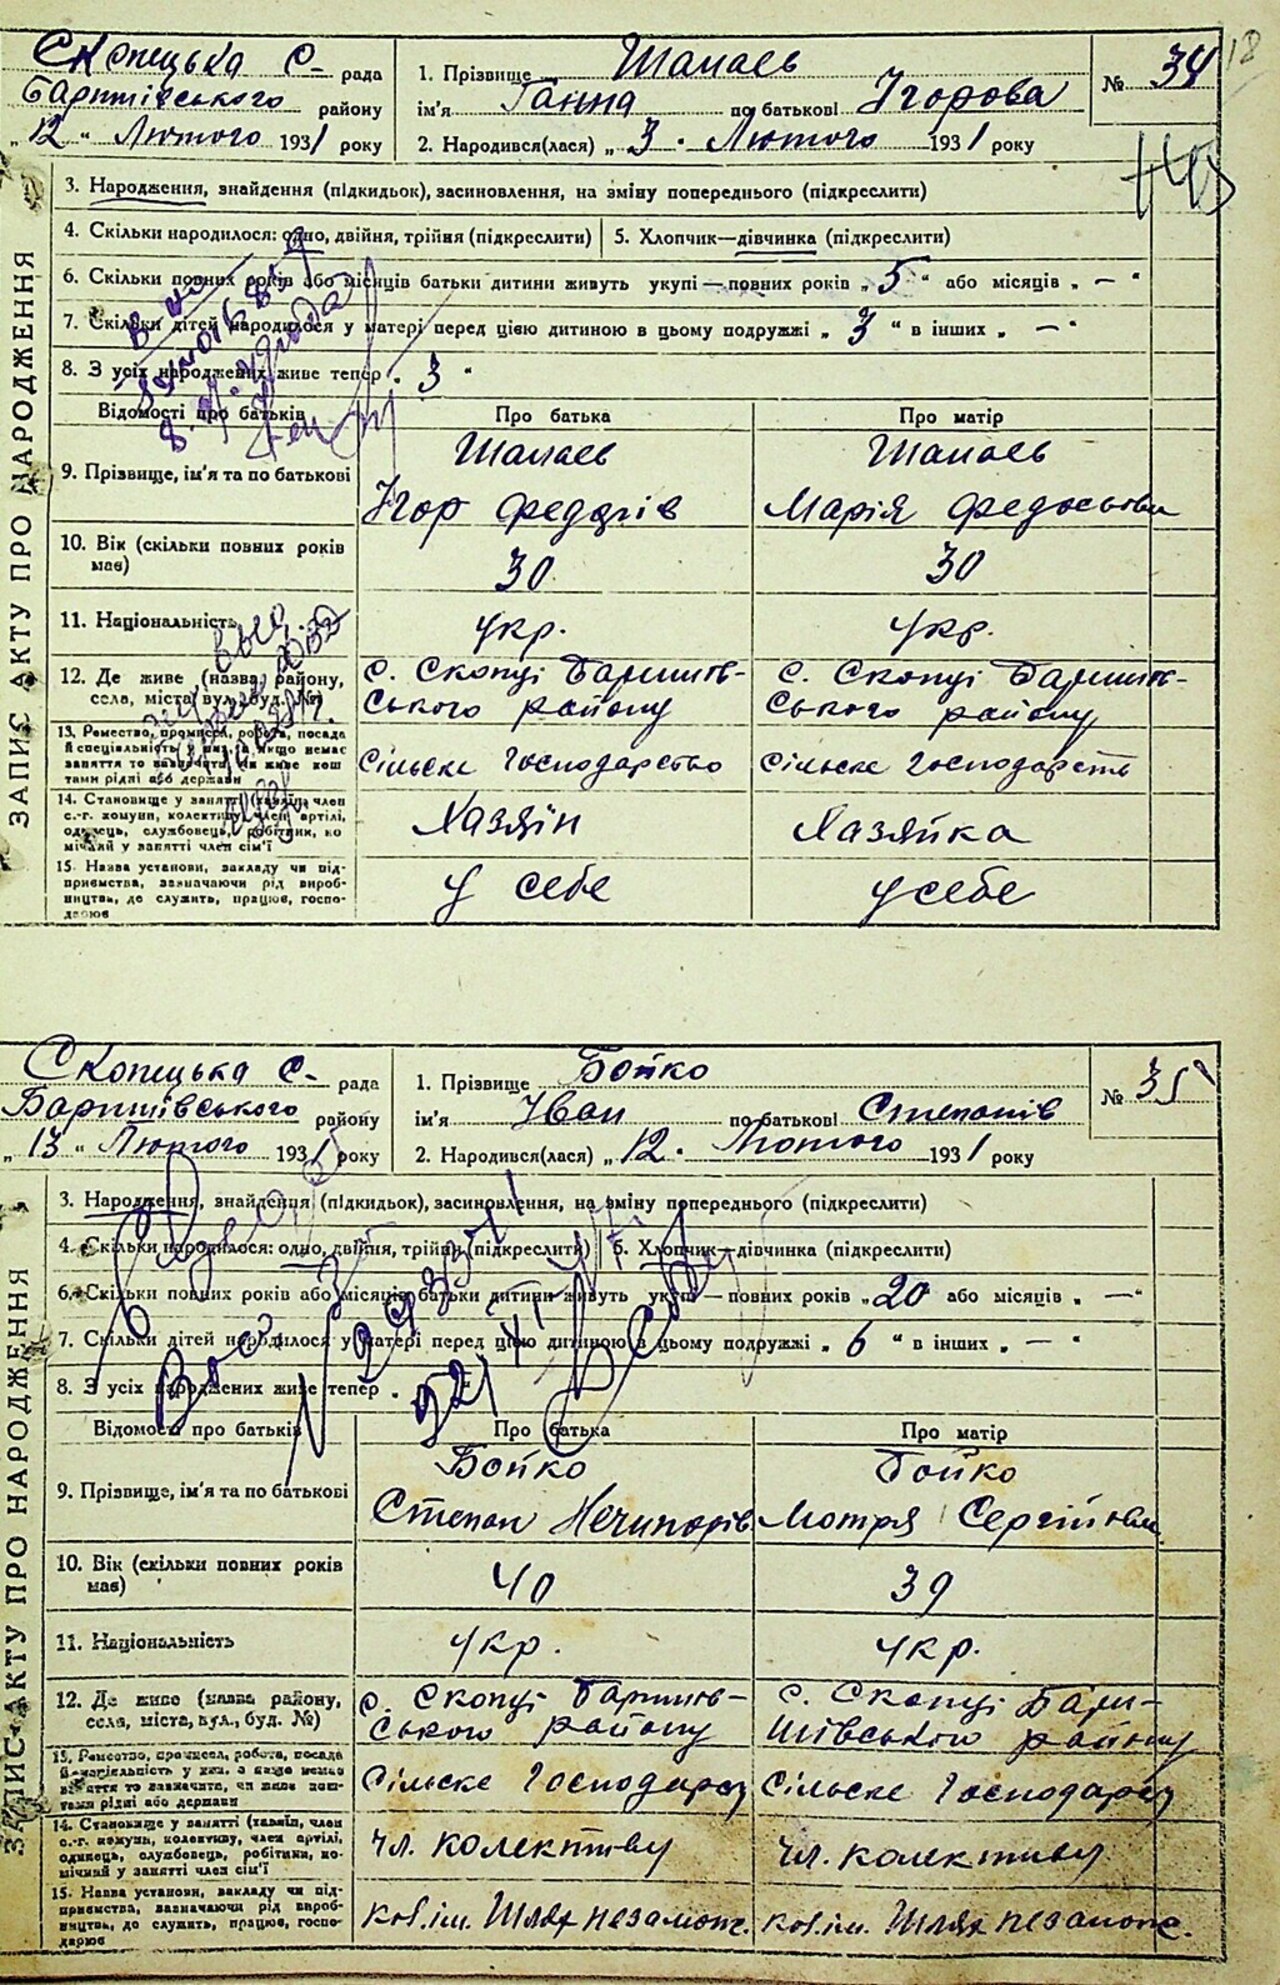 18
Скопецька с- рада
Баришівського району
„12" Лютого 1931 року
1. Прізвище Шапаєв
ім'я Ганна по батькові Ігорова
2. Народився(лася) „3" Лютого 1931 року
№ 34
ЗАПИС АКТУ ПРО НАРОДЖЕННЯ
3. Народження, знайдення (підкидьок), засиновлення, на зміну попереднього (підкреслити)
4. Скільки народилося: одно, двійня, трійня (підкреслити) 5. Хлопчик—дівчинка (підкреслити)
6. Скільки повних років або місяців батьки дитини живуть укупі—повних років „5" або місяців „—"
7. Скільки дітей народилося у матері перед цією дитиною в цьому подружжі „3" в інших „—"
8. З усіх народжених живе тепер „3"
Відомості про батьків Про батька Про матір
9. Прізвище, ім'я та по батькові
Шапаєв Шапаєв
Ігор Федорів Марія Федосьівн
10. Вік (скільки повних років має) 30 30
11. Національність укр. укр.
12. Де живе (назва району, села, міста, вул., буд. №)
с. Скопці Баришів- с. Скопці Баришів-
ського району ського району
13. Ремество, промисел, робота, посада й спеціяльність у них, а якщо немає заняття то зазначити, чи живе коштами рідні або держави
Сільске Господарство Сільске Господарств
14. Становище у занятті (хазяїн, член с.-г. комуни, колективу, член артілі, одинець, службовець, робітник, помічний у занятті член сім'ї
Хазяїн Хазяйка
15. Назва установи, закладу чи підприємства, зазначаючи рід виробництва, де служить, працює, господарює
у себе у себе
Скопецька с- рада
Баришівського району
„13" Лютого 1931 року
1. Прізвище Бойко
ім'я Іван по батькові Степанів
2. Народився(лася) „12" Лютого 1931 року
№ 35
ЗАПИС АКТУ ПРО НАРОДЖЕННЯ
3. Народження, знайдення (підкидьок), засиновлення, на зміну попереднього (підкреслити)
4. Скільки народилося: одно, двійня, трійня (підкреслити) 5. Хлопчик—дівчинка (підкреслити)
6. Скільки повних років або місяців батьки дитини живуть укупі—повних років „20" або місяців „—"
7. Скільки дітей народилося у матері перед цією дитиною в цьому подружжі „6" в інших „—"
8. З усіх народжених живе тепер
Відомості про батьків Про батька Про матір
9. Прізвище, ім'я та по батькові
Бойко Бойко
Степан Нечипорів Мотря Сергіївн.
10. Вік (скільки повних років має) 40 39
11. Національність укр. укр.
12. Де живе (назва району, села, міста, вул., буд. №)
с. Скопці Баришів- с. Скопці Бари-
ського району шівського району
13. Ремество, промисел, робота, посада й спеціяльність у них, а якщо немає заняття то зазначити, чи живе коштами рідні або держави
Сільске Господарст Сільске Господарст
14. Становище у занятті (хазяїн, член с.-г. комуни, колективу, член артілі, одинець, службовець, робітник, помічний у занятті член сім'ї
чл. колективу чл. колективу
15. Назва установи, закладу чи підприємства, зазначаючи рід виробництва, де служить, працює, господарює
кол. ім. Шлях незамож. кол. ім. Шлях незамож.